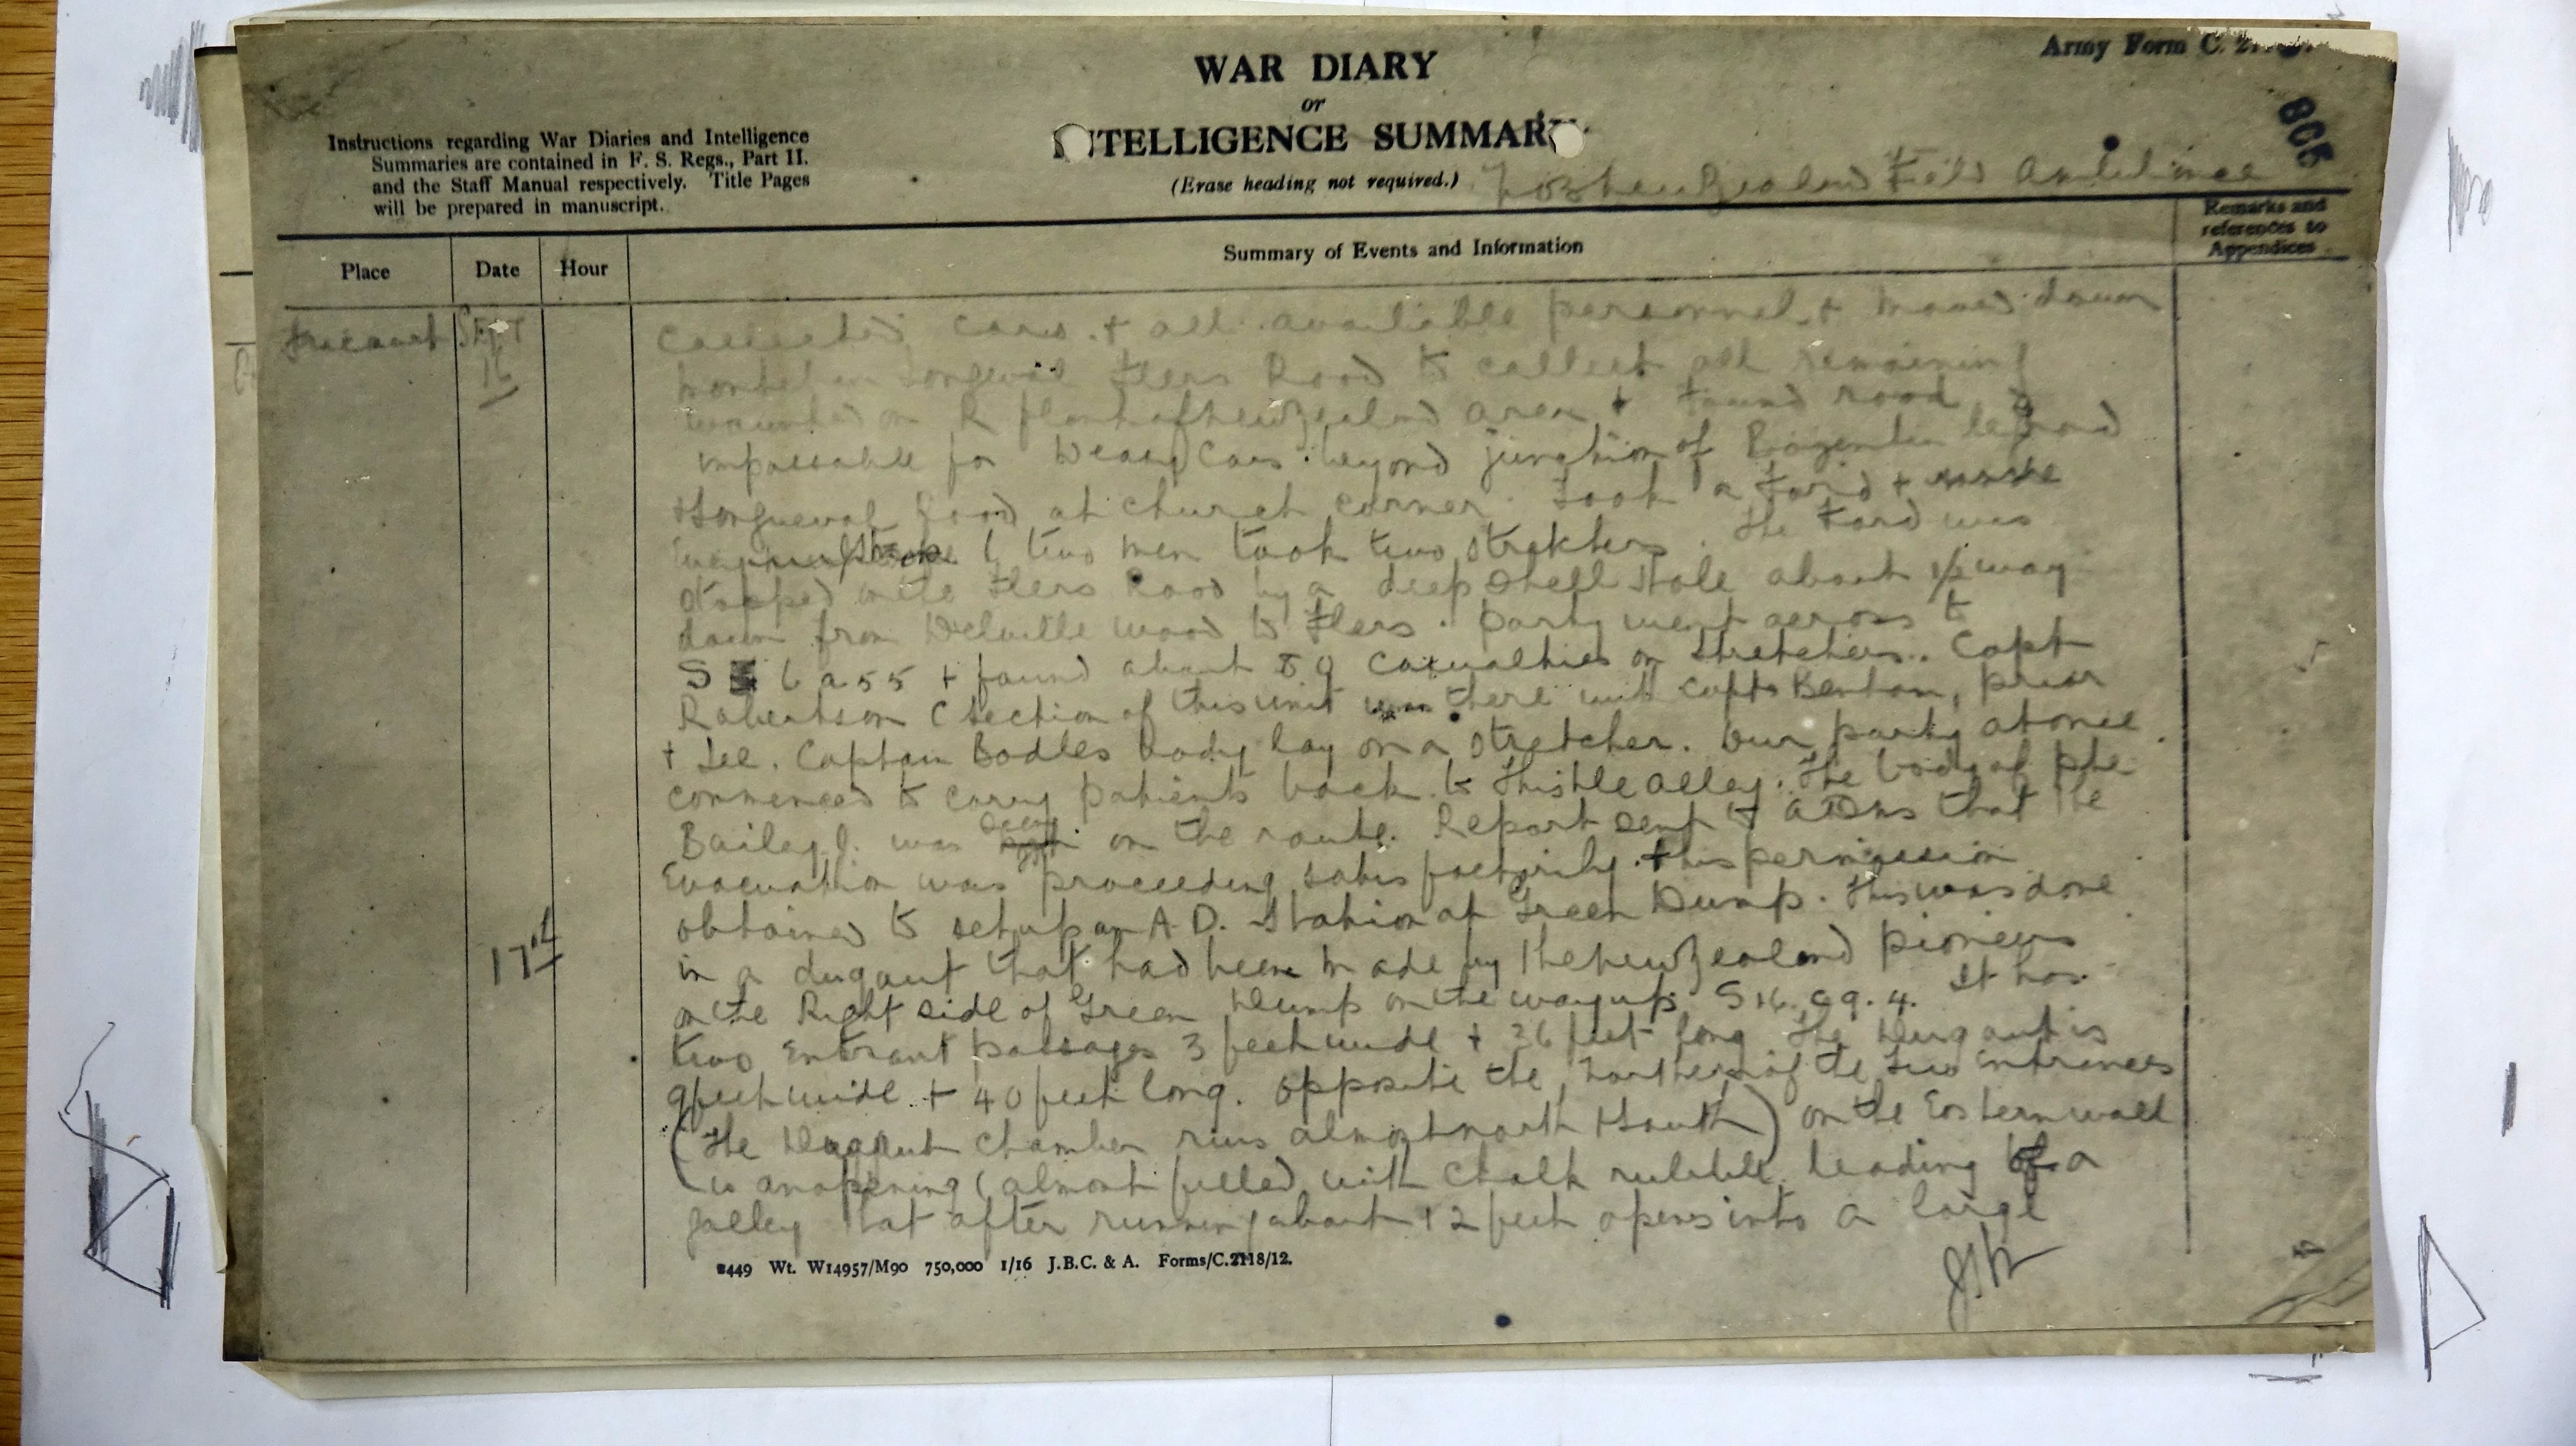 Army Form C.
WAR DIARY
or
INTELLIGENCE SUMMARY.
(Erase heading not required.)
Instructions regarding War Diaries and Intelligence
Summaries are contained in F. S. Regs., Part II.
and the Staff Manual respectively. Title Pages
will be prepared in manuscript.
New Zealand Field Ambulance
Place
Date
Hour
Summary of Events and Information
Remarks and
references to
Appendices
Sept
16
collected cars + all available personnel + moved down
Longueval Flers Road to collect all remaining
wounded on R flank of New Zealand area + found road
impassable for heavy cars beyond junction of Bazentin le grand
+ Longueval Road at church corner. Took a Ford +
two men took two stretchers. The Ford was
stopped in the Flers Road by a deep shell hole about 1/2 way
down from Delville Wood to Flers. Party went across to
S 6 a 55 + found about 59 casualties on stretchers. Capt
Robertson C Section of this unit was there with Capts Benham, Prior
+ Lee. Captain Bodles body lay on a stretcher. Our party at once
commenced to carry patients back to Thistle Alley. The body of Pte
Bailey J. was seen on the route. Report sent to ADMS that the
Evacuation was proceeding satisfactorily + his permission
obtained to set up an A.D. Station at Green Dump. This was done
17th
in a dugout that had been made by the New Zealand pioneers
on the Right side of Green Dump on the way up. S16. c9.4. It has
two entrant passages 3 feet wide + 36 feet long. The Dugout is
9 feet wide + 40 feet long. Opposite the Northern of the two entrances
(The Dugout chamber runs almost north + south) on the Eastern wall
is an opening (almost filled with chalk rubble, leading to a
galley that after running about 12 feet opens into a large
2449 Wt. W14957/M90 750,000 1/16 J.B.C. & A. Forms/C.2118/12.